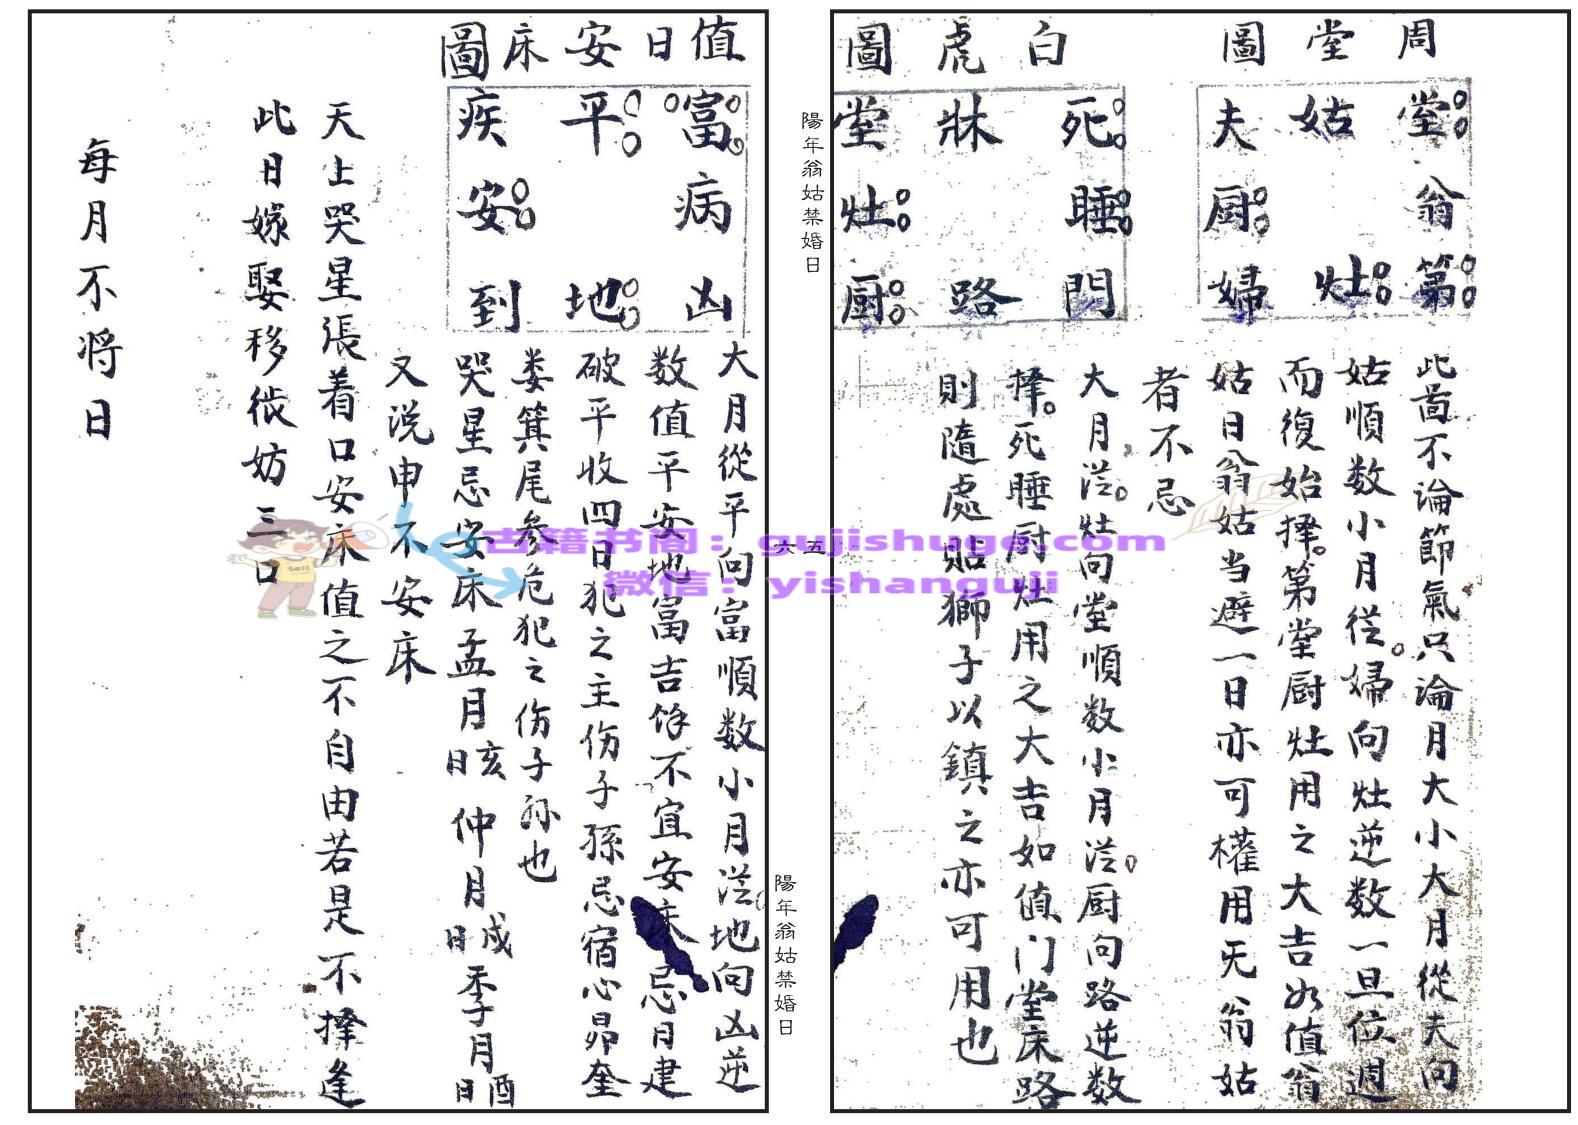 周堂圖
堂姑夫
翁厨
第灶婦
此啚不論節氣只論月大小大月從夫向
姑順数小月從婦向灶逆数一旦位週
而復始擇第堂厨灶用之大吉如值翁
姑日翁姑当避一日亦可權用无翁姑
者不忌
白虎圖
死牀堂
睡灶
門路厨
大月從灶向堂順数小月從厨向路逆数
擇死睡厨灶用之大吉如值门堂床路
則隨處貼獅子以鎮之亦可用也
陽年翁姑禁婚日
六五
陽年翁姑禁婚日
值日安床圖
富平疾
病安
凶地到
大月從平向富順数小月從地向凶逆
数值平安地富吉馀不宜安床忌月建
破平收四日犯之主伤子孫忌宿心昴奎
娄箕尾参危犯之伤子孙也
哭星忌安床孟月亥日仲月戍日季月酉日
又说申不安床
天上哭星張着口安床值之不自由若是不擇逢
此日嫁娶移徙妨三口
每月不将日
古籍书阁：gujishuge.com
微信：yishanguji